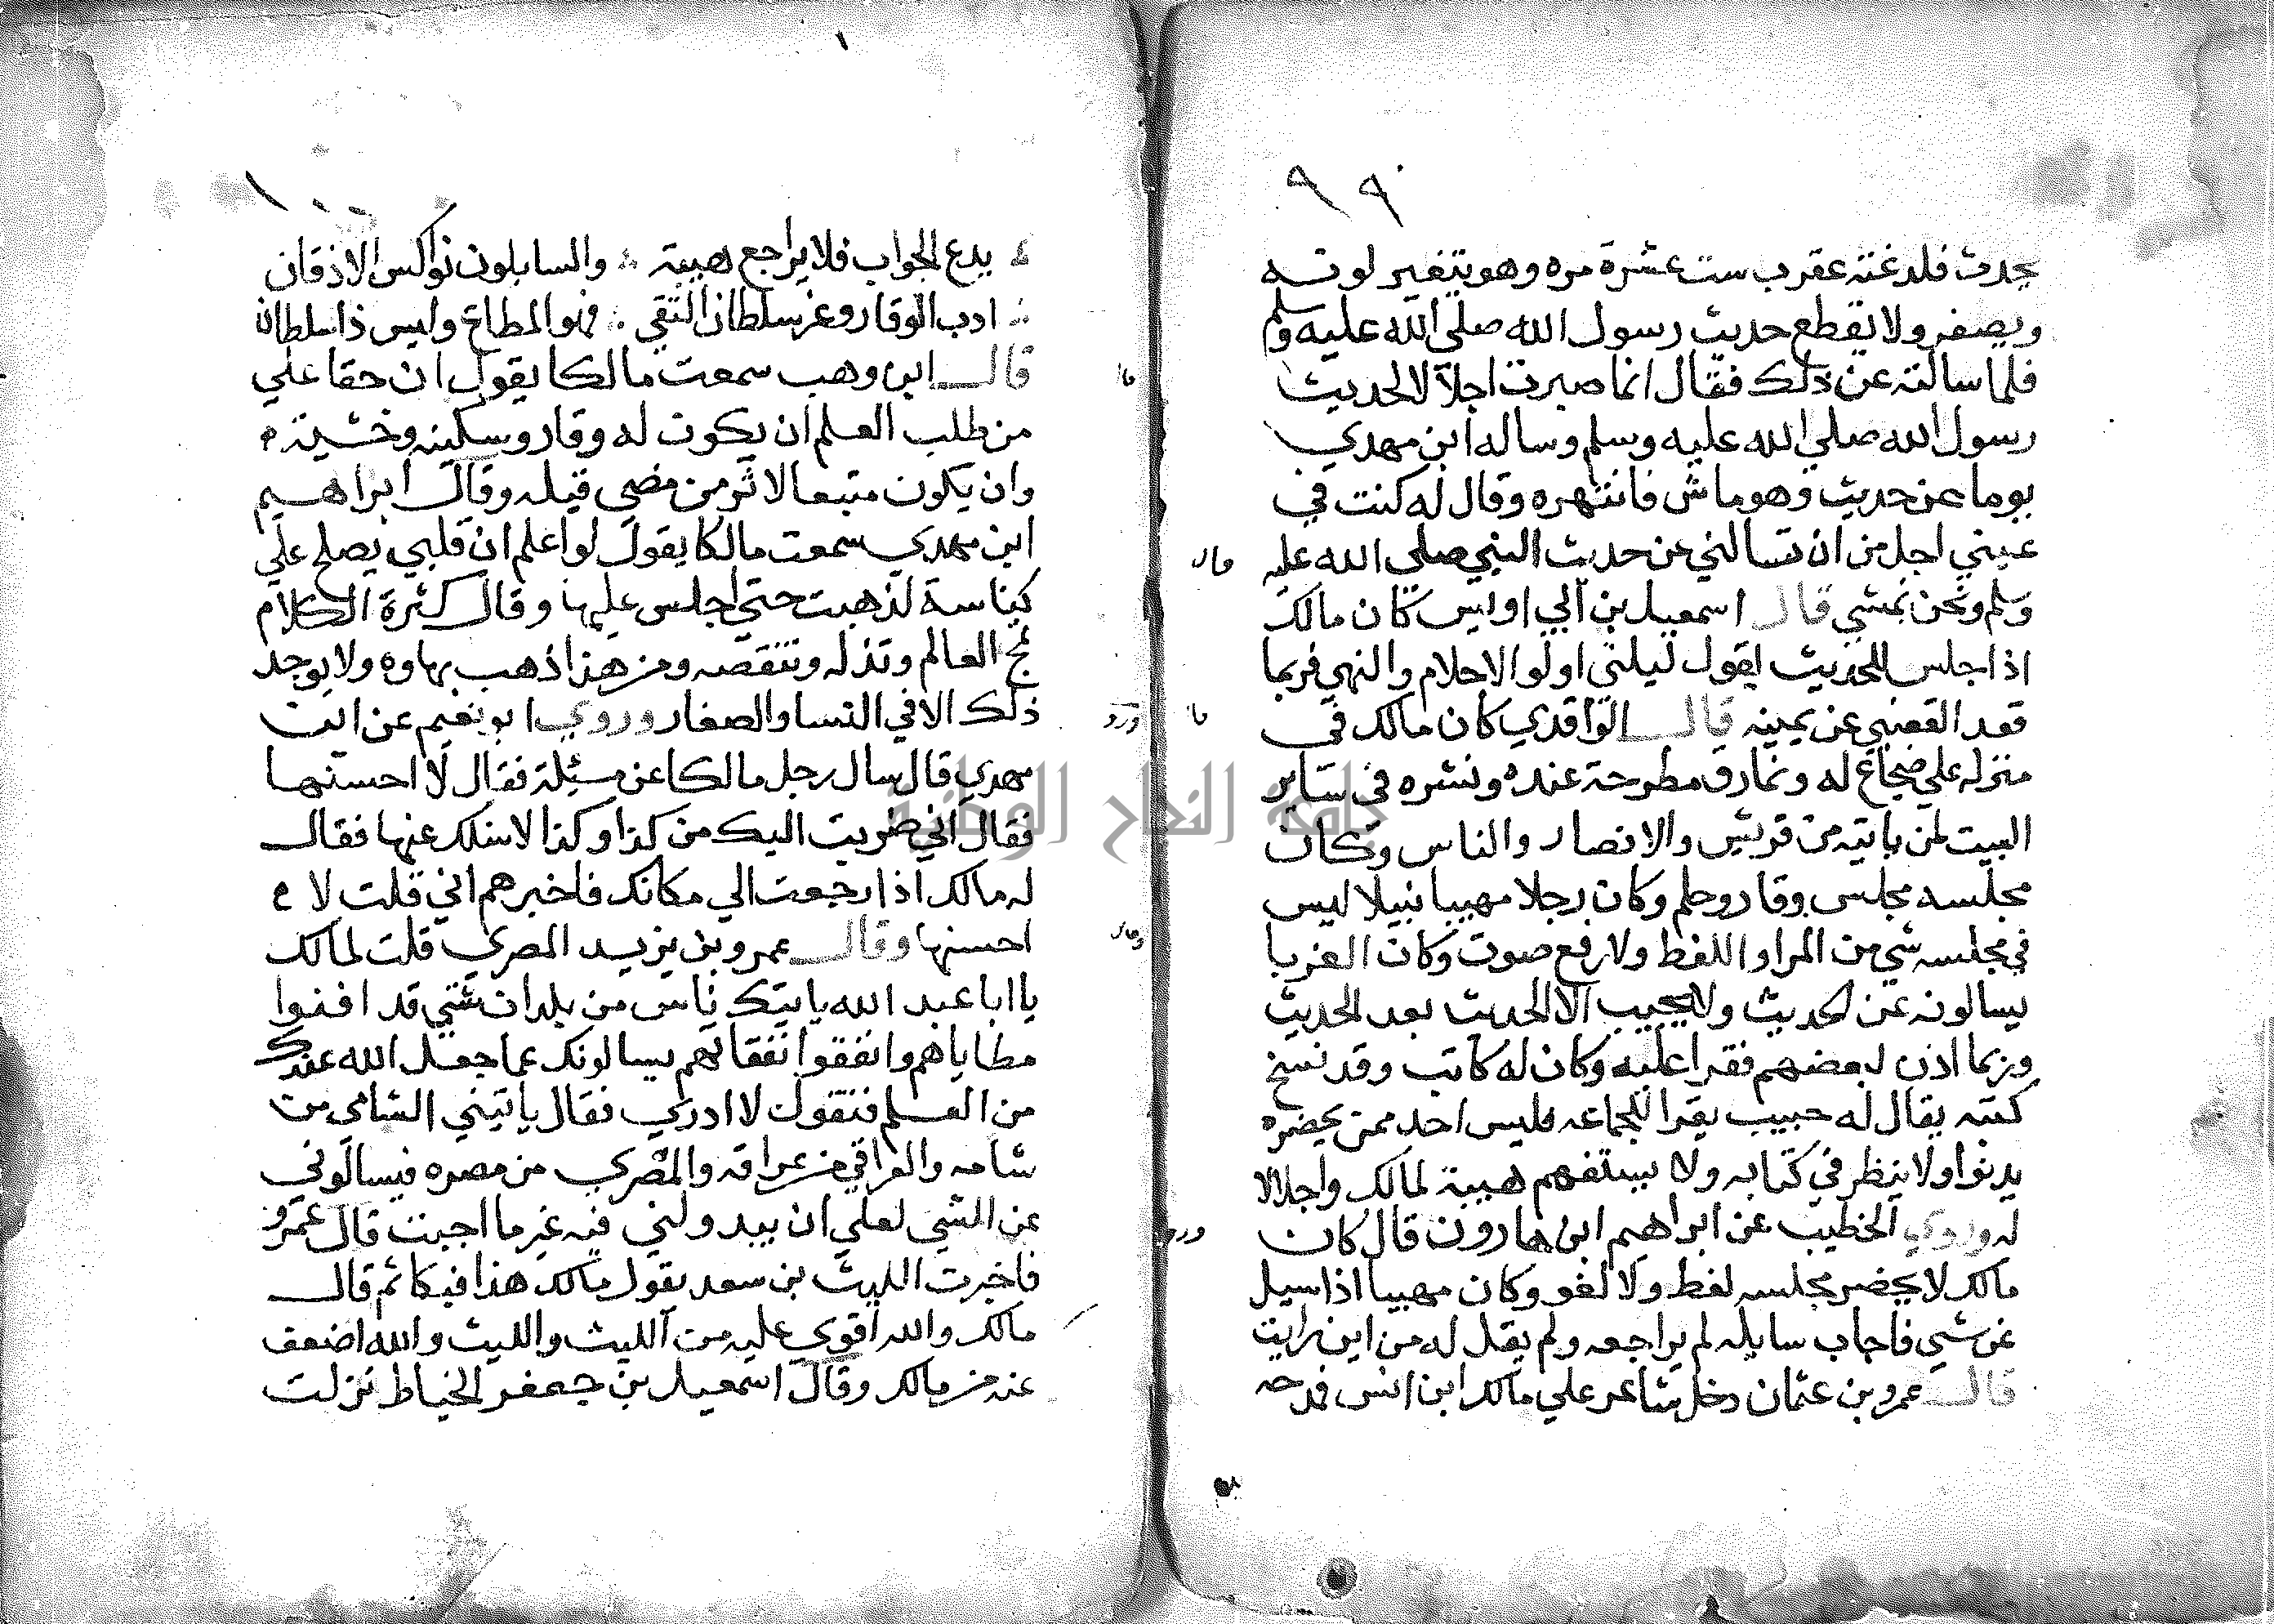 ٩٩
يحدث فلدغته عقرب ست عشرة مره وهو يتغير لونه
ويصفر ولا يقطع حديث رسول الله صلى الله عليه وسلم
فلما سالته عن ذلك فقال انما صبرت اجلالا لحديث
رسول الله صلي الله عليه وسلم وساله ابن مهدي
يوما عن حديث وهو ماش فانتهره وقال له كنت في
عيني اجل من ان تسالني عن حديث النبي صلى الله عليه
وسلم ونحن نمشي قال اسمعيل بن ابي اويس كان مالك
اذا جلس للحديث يقول ليلني اولوا الاحلام والنهي فربما
قعد القعنبي عن يمينه قال الواقدي كان مالك في
منزله علي ضجاع له ونمارق مطروحة عنده ونشره في ساير
البيت لمن ياتيه من قريش والانصار والناس وكان
مجلسه مجلس وقار وحلم وكان رجلا مهيبا نبيلا ليس
في مجلسه شي من المرا واللغط ولا رفع صوت وكان الغربا
يسالونه عن الحديث ولا يجيب الا الحديث بعد الحديث
وربما اذن لبعضهم فقرا عليه وكان له كاتب وقد نسخ
كتبه يقال له حبيب يقرا للجماعه فليس احد ممن يحضره
يدنوا ولا ينظر في كتابه ولا يستفهم هيبة لمالك واجلالا
له وروي الخطيب عن ابراهيم ابن هارون قال كان
مالك لا يحضر مجلسه لغط ولا لغو وكان مهيبا اذا سيل
عن شي فاجاب سايله لم يراجعه ولم يقل له من اين رايت
قال عمرو بن عثمان دخل شاعر علي مالك ابن انس فمدحه
قال
قال
وروي
١٠٠
يدع الجواب فلا يراجع هيبة والسايلون نواكس الاذقان
ادب الوقار وعز سلطان التقي فهو المطاع وليس ذا سلطان
قال ابن وهب سمعت مالكا يقول ان حقا علي
من طلب العلم ان يكون له وقار وسكينه وخشية
وان يكون متبعا لاثر من مضي قبله وقال ابراهيم
ابن مهدي سمعت مالكا يقول لو اعلم ان قلبي يصلح علي
كناسة لذهبت حتي اجلس عليها وقال كثرة الكلام
تمج العالم وتذله وتنقصه ومن هذا ذهب بهاوه ولا يوجد
ذلك الا في النسا والصغار وروي ابو نعيم عن ابن
مهدي قال سال رجل مالكا عن مسئلة فقال لا احسنها
فقال اني ضربت اليك من كذا وكذا لاسئلك عنها فقال
له مالك اذا رجعت الي مكانك فاخبرهم اني قلت لا
احسنها وقال عمرو بن يزيد المصري قلت لمالك
يا ابا عبد الله ياتيك ناس من بلدان شتي قد افنوا
مطاياهم وانفقوا نفقاتهم يسالونك عما جعل الله عندك
من العلم فتقول لا ادري فقال ياتيني الشامي من
شامه والعراقي من عراقه والمصري من مصره فيسالوني
عن الشي لعلي ان يبدو لني فيه غير ما اجبت قال عمرو
فاخبرت الليث بن سعد بقول مالك هذا فبكا ثم قال
مالك والله اقوي عليه من الليث والليث والله اضعف
عنه من مالك وقال اسمعيل بن جعفر الخياط نزلت
قال
وروي
وقال
جامعة النجاح الوطنية